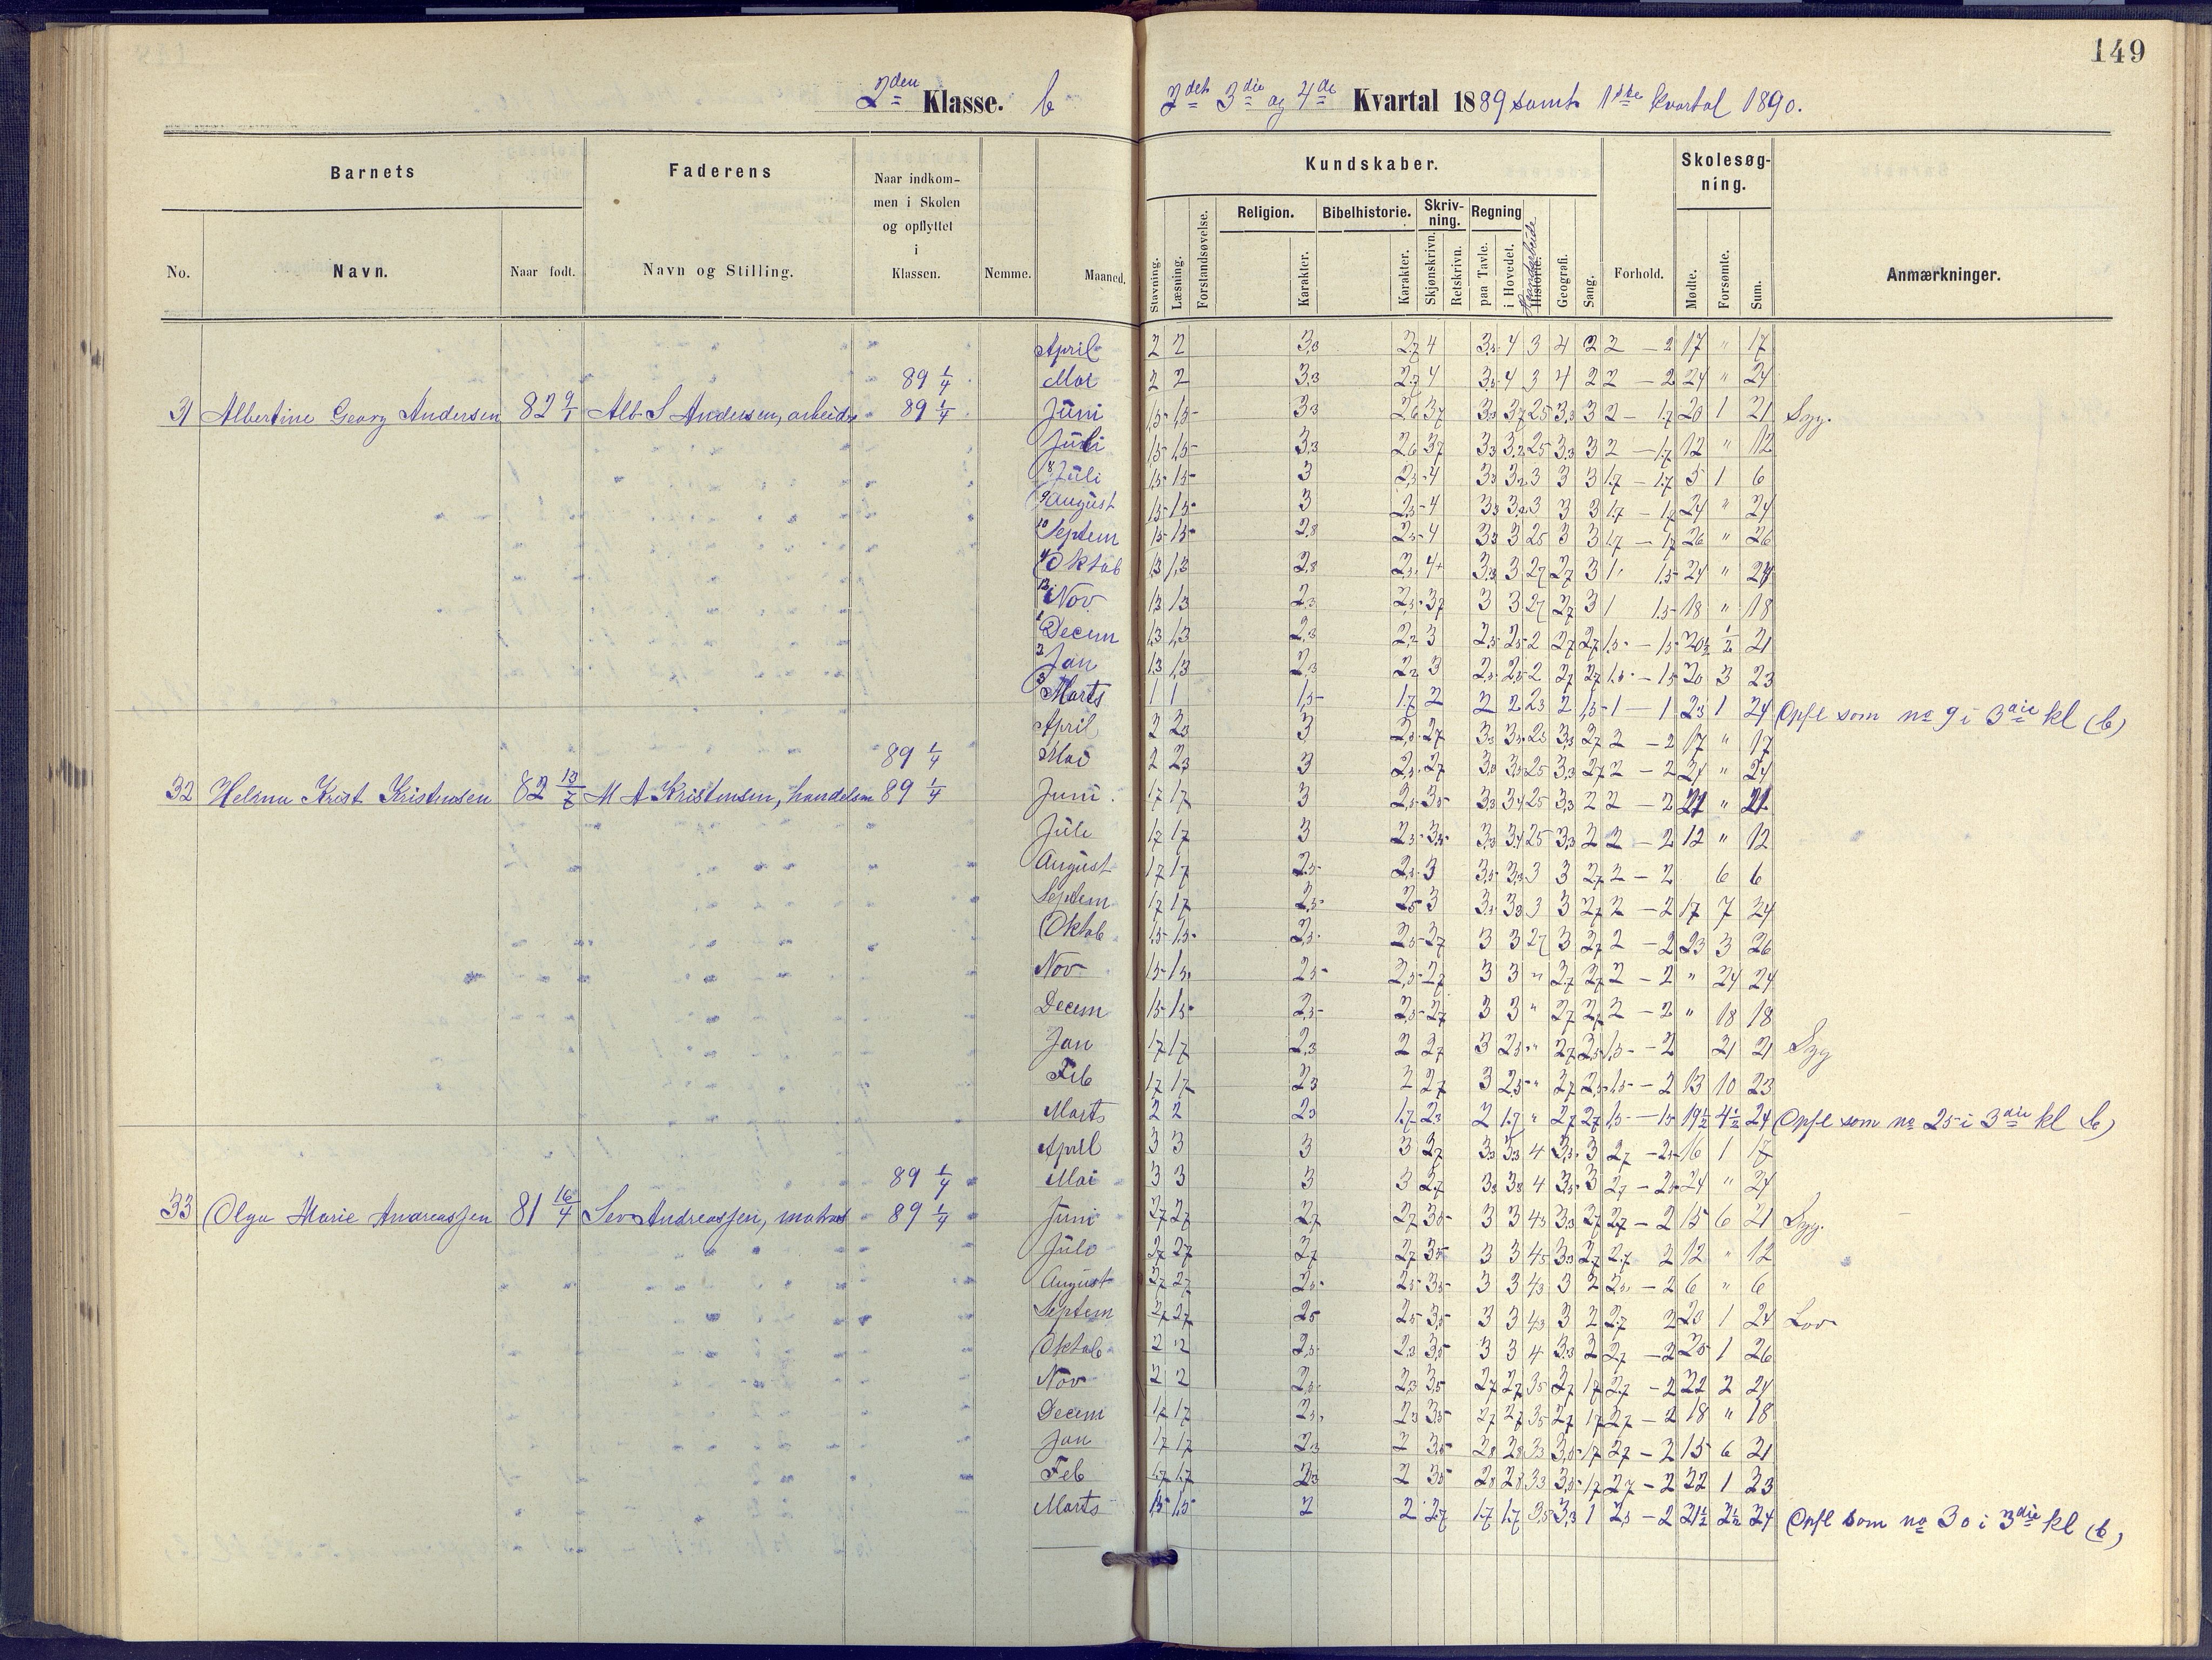 149
2den Klasse. b
2det 3die og 4de Kvartal 1889 samt 1ste Kvartal 1890.
Barnets
Faderens
Naar indkommen i Skolen og opflyttet i Klassen.
Nemme.
Maaned.
No.
Navn.
Naar født.
Navn og Stilling.
Kundskaber.
Skolesøgning.
Religion.
Bibelhistorie.
Skrivning.
Regning
Stavning.
Læsning.
Forstandsøvelse.
Karakter.
Karakter.
Skjønskrivn.
Retskrivn.
paa Tavle.
i Hovedet.
Haandarbeide
Historie.
Geografi.
Sang.
Forhold.
Mødte.
Forsømte.
Sum.
Anmærkninger.
April 2 2 3,3 2,7 4 3,5 4 3 4 2 2 — 2 17 " 17
89 1/4 Mai 2 2 3,3 2,7 4 3,5 4 3 4 2 2 — 2 24 " 24
31 Albertine Georg Andersen 82 9/1 Alb S Andersen, arbeider 89 1/4 Juni 1,5 1,5 3,3 2,6 3,7 3,3 3,7 2,5 3,3 3 2 — 1,7 20 1 21 Syg.
Juli 1,5 1,5 3,3 2,6 3,7 3,3 3,2 2,5 3,3 3 2 — 1,7 12 " 12
8 Juli 1,5 1,5 3 2,5 4 3,3 3,2 3 3 3 1,7 — 1,7 5 1 6
9 August 1,5 1,5 3 2,5 4 3,3 3,2 3 3 3 1,7 — 1,7 24 " 24
10 Septem 1,5 1,5 2,8 2,5 4 3,3 3 2,5 3 3 1,7 — 1,7 26 " 26
11 Oktob 1,3 1,3 2,8 2,5 4+ 3,3 3 2,7 2,7 3 1 1,5 24 " 24
12 Nov 1,3 1,3 2,3 2,5 3,7 3 3 2,7 2,7 3 1 1,5 18 " 18
1 Decem 1,3 1,3 2,3 2,2 3 2,5 2,5 2 2,7 2,7 1,5 — 1,5 20 1/2 1/2 21
2 Jan 1,3 1,3 2,3 2,2 3 2,5 2,5 2 2,7 2,7 1,5 — 1,5 20 3 23
3 Marts 1 1 1,5 1,7 2 2 2 2,3 2 1,5 1 — 1 23 1 24 Opfl som no 9 i 3die kl (b)
April 2 2,3 3 2,5 2,7 3,3 3,5 2,5 3,3 2,7 2 — 2 17 " 17
89 1/4 Mai 2 2,3 3 2,5 2,7 3,3 3,5 2,5 3,3 2,7 2 — 2 24 " 24
32 Helena Krist Kristensen 82 13/7 M A Kristensen, handelsm 89 1/4 Juni 1,7 1,7 3 2,5 3,5 3,3 3,4 2,5 3,3 2 2 — 2 21 " 21
Juli 1,7 1,7 3 2,5 3,5 3,3 3,4 2,5 3,3 2 2 — 2 12 " 12
August 1,7 1,7 2,5 2,5 3 3,5 3,3 3 3 2,7 2 — 2 6 6
Septem 1,7 1,7 2,5 2,5 3 3,3 3,3 3 3 2,7 2 — 2 17 7 24
Oktob 1,5 1,5 2,5 2,5 2,7 3 3 2,7 3 2,7 2 — 2 23 3 26
Nov 1,5 1,5 2,5 2,5 2,7 3 3 " 2,7 2,7 2 — 2 " 24 24
Decem 1,5 1,5 2,5 2,5 2,7 3 3 " 2,7 2,7 2 — 2 " 18 18
Jan 1,7 1,7 2,3 2 2,7 3 2,5 " 2,7 2,5 1,5 — 2 21 21 Syg
Feb 1,7 1,7 2,3 2 2,7 3 2,5 " 2,7 2,5 1,5 — 2 13 10 23
Marts 2 2 2,3 1,7 2,3 2 1,7 " 2,7 2,7 1,5 — 1,5 19 1/2 4 1/2 24 Opfl som no 25 i 3die kl (b)
April 3 3 3 3 2,7 3,3 3,3 4 3,5 3 2,7 — 2,5 16 1 17
89 1/4 Mai 3 3 3 3 2,7 3,3 3,3 4 3,5 3 2,7 — 2,5 24 " 24
33 Olga Marie Andreassen 81 16/4 Sev Andreassen, matros 89 1/4 Juni 2,7 2,7 2,7 2,7 3,5 3 3 4,3 3,3 2,7 2,7 — 2 15 6 21 Syg.
Juli 2,7 2,7 2,7 2,7 3,5 3 3 4,5 3,3 2,7 2,7 2 12 " 12
August 2,7 2,7 2,5 2,5 3,5 3 3 4,3 3 2 2,5 — 2 6 " 6
Septem 2,7 2,7 2,5 2,5 3,5 3 3 4,3 3 2 2,7 2 20 1 24 Lov
Oktob 2 2 2,5 2,3 3,5 3 3 4 3,3 2 2,7 — 2 25 1 26
Nov 2 2 2,5 2,3 3,5 2,7 2,7 3,5 2,7 1,7 2,7 — 2 22 2 24
Decem 1,7 1,7 2,5 2,3 3,5 2,7 2,7 3,5 2,7 1,7 2,7 — 2 18 " 18
Jan 1,7 1,7 2,3 2 3,5 2,8 2,8 3,3 3,5 1,7 2,7 — 2 15 6 21
Feb 1,7 1,7 2,3 2 3,5 2,8 2,8 3,3 3,5 1,7 2,7 — 2 22 1 23
Marts 1,5 1,5 2 2 2,7 1,7 1,7 3,5 3,3 1 2,5 — 2 21 1/2 2 1/2 24 Opfl som no 30 i 3die kl (b)